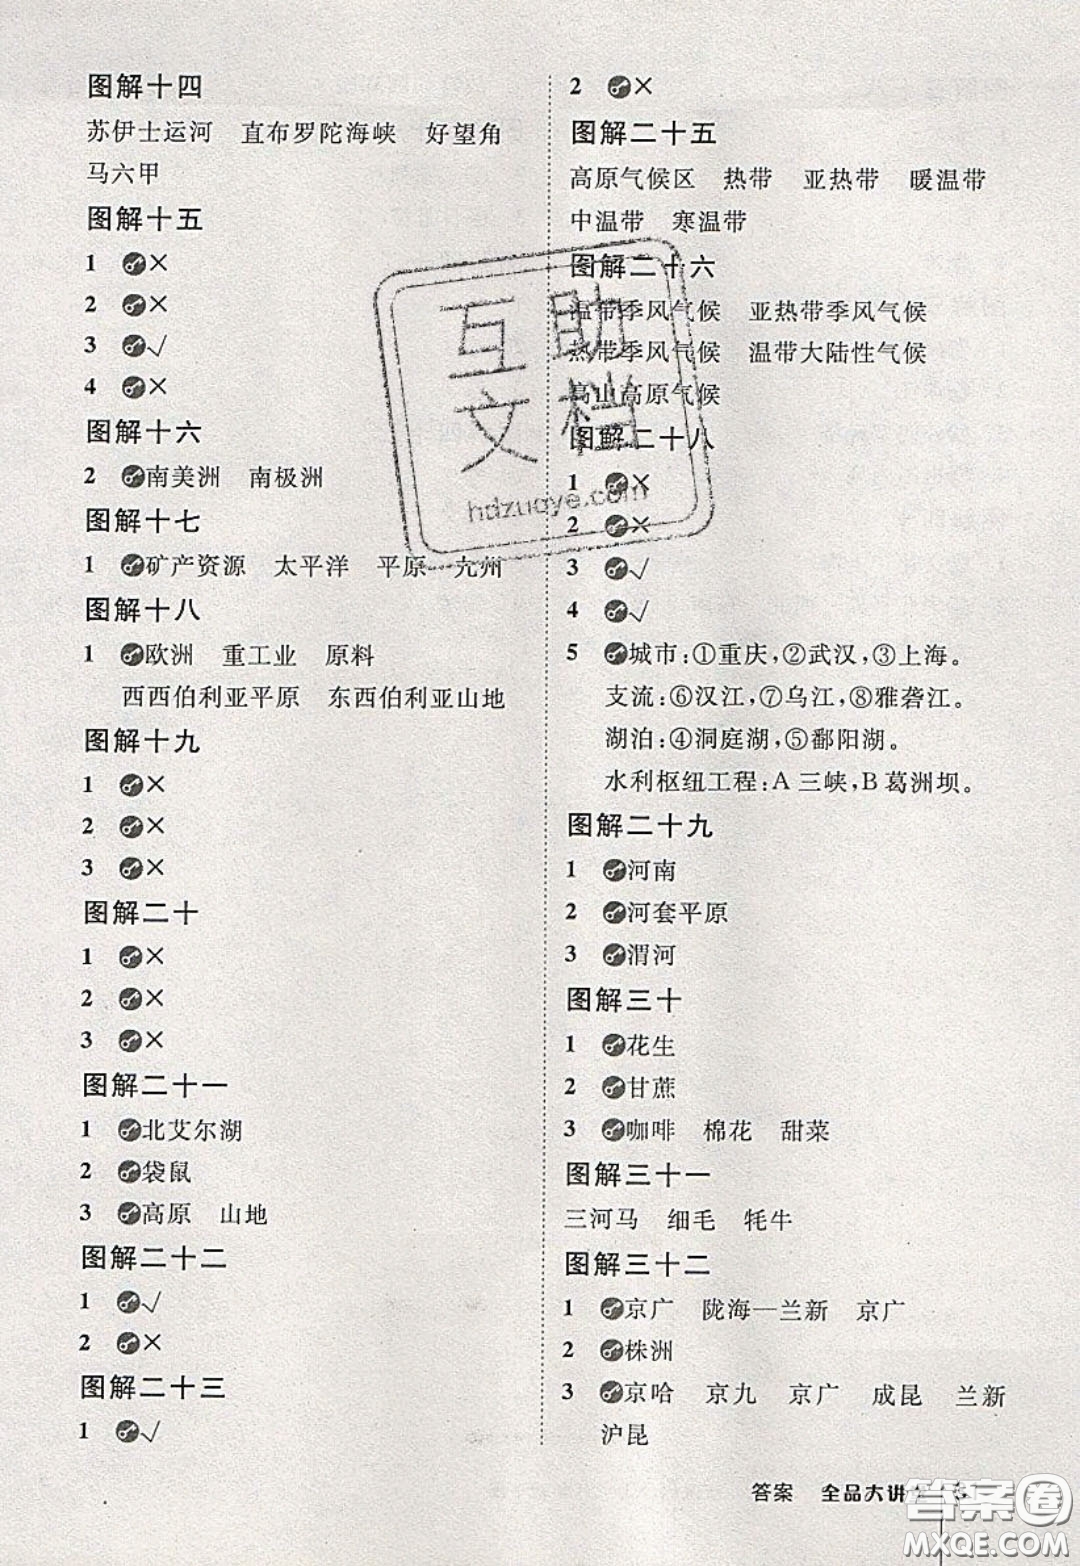 图解十四
苏伊士运河 直布罗陀海峡 好望角
马六甲
图解十五
1 ×
2 ×
3 √
4 ×
图解十六
2 南美洲 南极洲
图解十七
1 矿产资源 太平洋 平原 九州
图解十八
1 欧洲 重工业 原料
西西伯利亚平原 东西伯利亚山地
图解十九
1 ×
2 ×
3 ×
图解二十
1 ×
2 ×
3 ×
图解二十一
1 北艾尔湖
2 袋鼠
3 高原 山地
图解二十二
1 √
2 ×
图解二十三
1 √
2 ×
图解二十五
高原气候区 热带 亚热带 暖温带
中温带 寒温带
图解二十六
温带季风气候 亚热带季风气候
热带季风气候 温带大陆性气候
高山高原气候
图解二十八
1 ×
2 ×
3 √
4 √
5 城市:①重庆,②武汉,③上海。
支流:⑥汉江,⑦乌江,⑧雅砻江。
湖泊:④洞庭湖,⑤鄱阳湖。
水利枢纽工程:A 三峡,B 葛洲坝。
图解二十九
1 河南
2 河套平原
3 渭河
图解三十
1 花生
2 甘蔗
3 咖啡 棉花 甜菜
图解三十一
三河马 细毛 牦牛
图解三十二
1 京广 陇海—兰新 京广
2 株洲
3 京哈 京九 京广 成昆 兰新
沪昆
互助
文档
hdzuoye.com
答案 全品大讲
答案卷
MXQE.COM